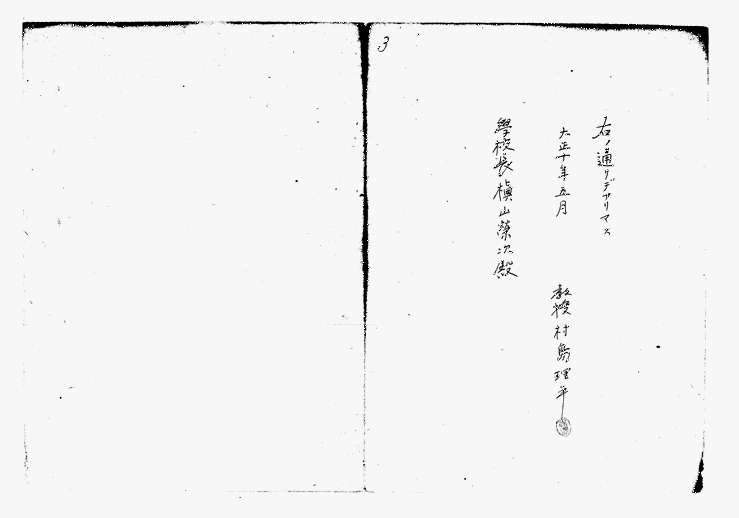 3
右ノ通リデアリマス
大正十年五月
教授 村島理平
學校長槇山榮次殿